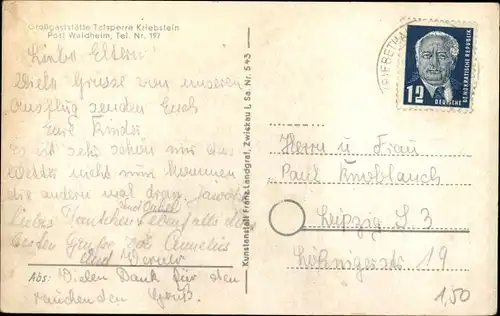 Großgaststätte Talsperre Kriebstein
Post Waldheim, Tel. Nr. 197
Liebe Eltern
Viele Grüsse von unseren
Ausflug senden Euch
Eure Kinder
Es ist sehr schön nur das
Wetter nicht nun kommen
die andern mal dran.
liebes Tantchen und Onkel ebenfalls die
besten Grüße von Annelies
und Werner
Abs: Vielen Dank für den
Gruß.
Kunstanstalt Franz Landgraf, Zwickau i. Sa. Nr. 543
KRIEBETHAL
DEUTSCHE
DEMOKRATISCHE REPUBLIK
12
Herrn u Frau
Paul Knoblauch
Leipzig S 3
Lößnigerstr 19
1,50